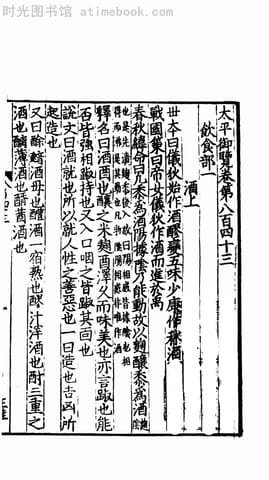 时光图书馆 - atimebook.com
太平御覽卷第八百四十三
飲食部一
酒上
世本曰儀狄始作酒醪變五味少康作秫酒
戰國策曰帝女儀狄作酒而進於禹
春秋緯命包黍為酒陽據陰乃能動故以麴釀黍為酒
釋名曰酒酉也釀之米麴酉澤久而味美也亦言踧也能
否皆強相踧持也又入口咽之皆踧其面也
說文曰酒就也所以就人性之善惡也一曰造也吉凶所
起造也
又曰酴酒母也醴酒一宿熟也醪汁滓酒也酎三重之
酒也醨薄酒也醑莤酒也